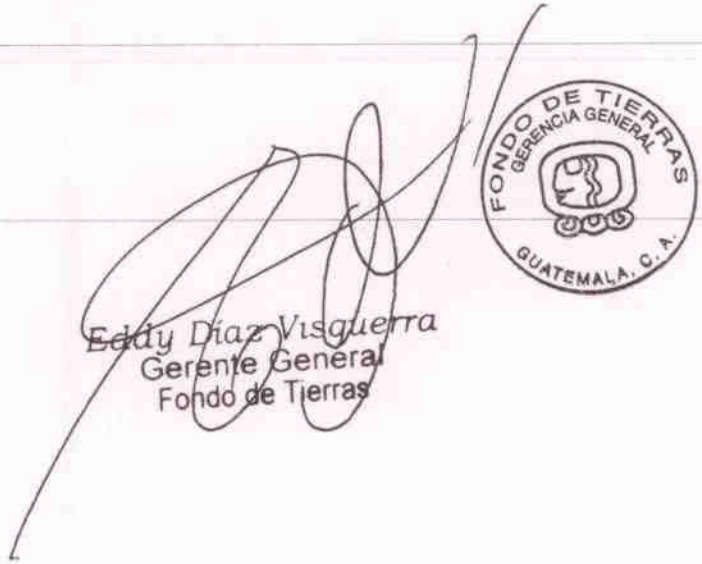 FONDO DE TIERRAS
GERENCIA GENERAL
GUATEMALA, C. A.
Eddy Díaz Visquerra
Gerente General
Fondo de Tierras